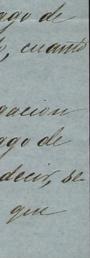 ago de
o, cuanto
gacion
ago de
decir, se
que